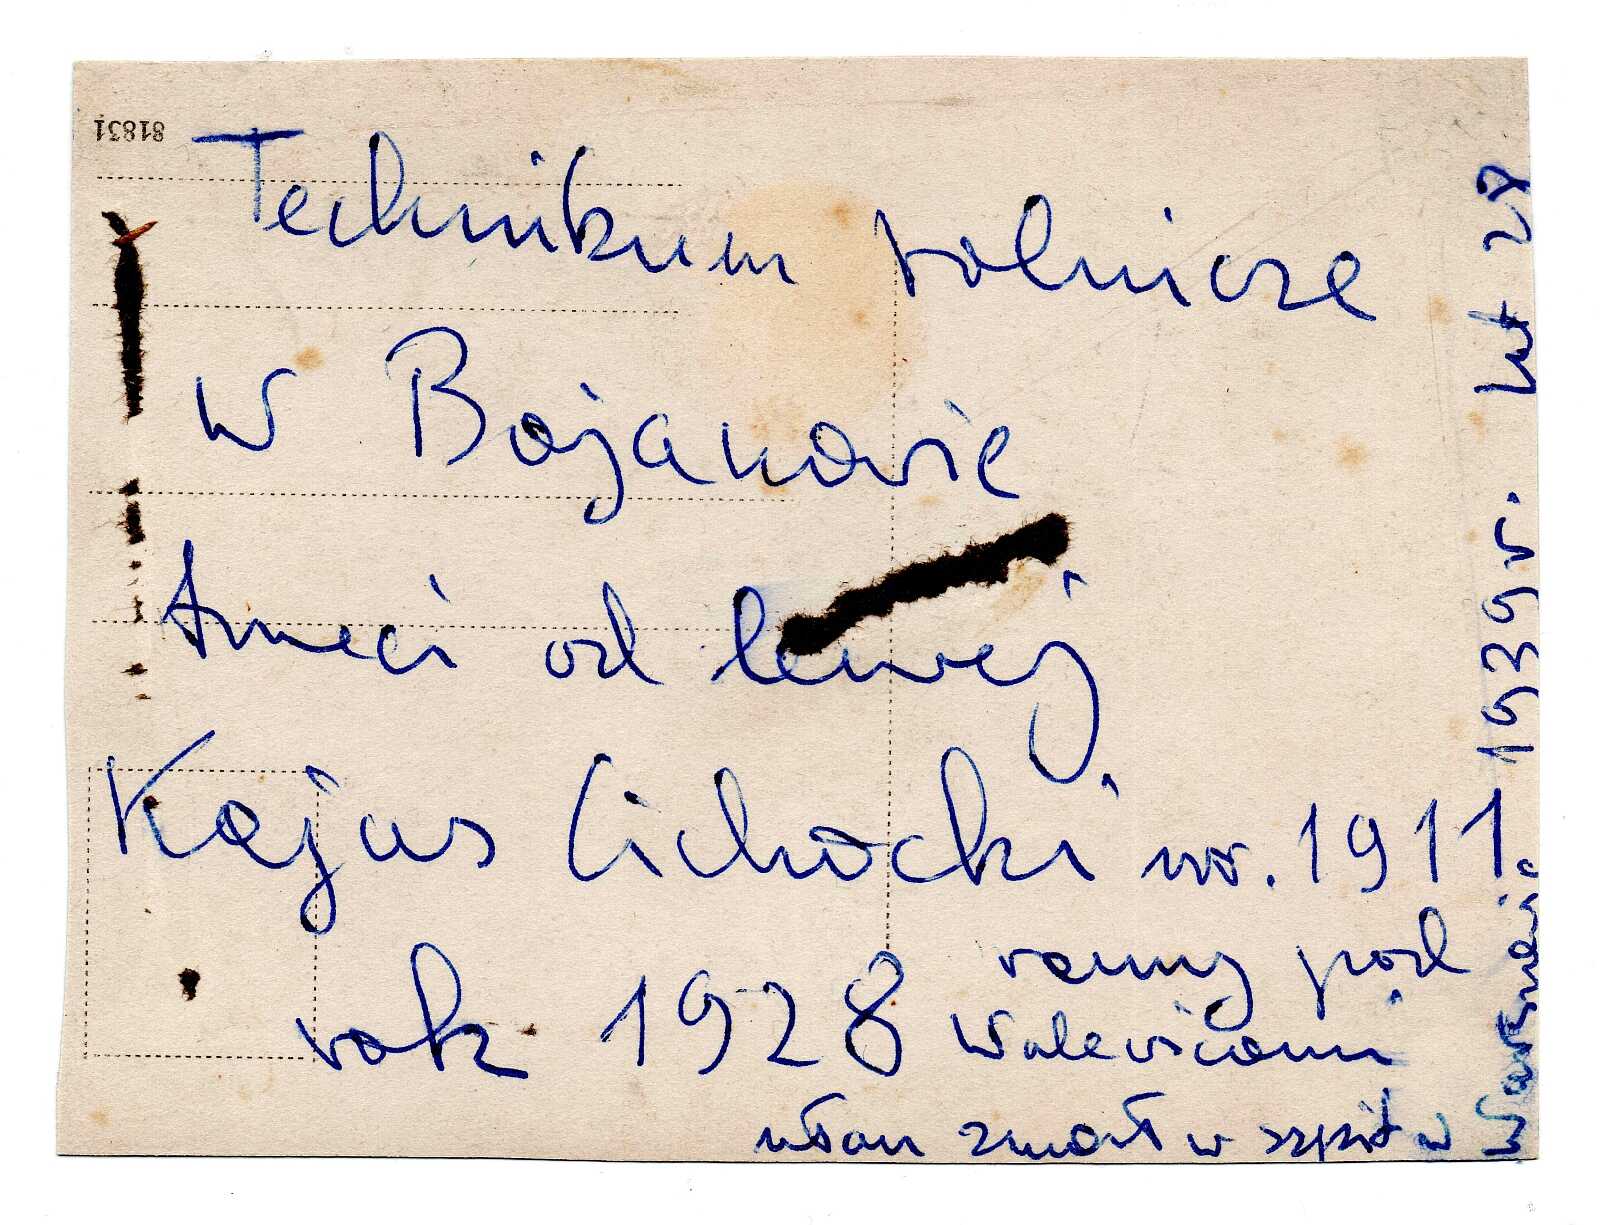 81831
Technikum rolnicze
w Bojanowie
trzeci od lewej
Kajus Cichocki ur. 1911
rok 1928
ranny pod
Walewicami
ułan zmarł w szpit w
Warszawie. 1939 r. lat 28